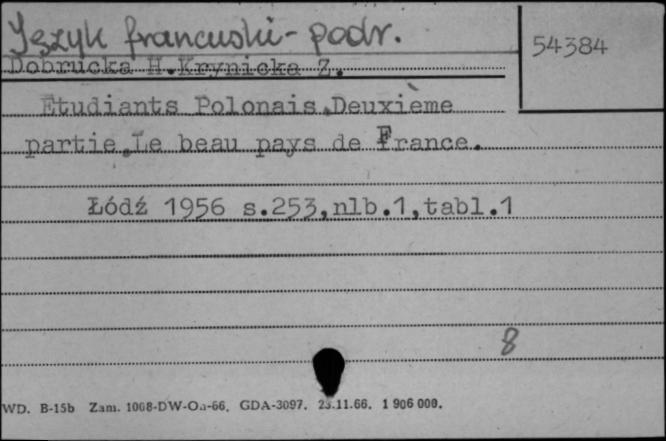 Język francuski - podr.
54384
Dobrucka H.Krynicka Z.
Etudiants Polonais.Deuxième
partie.Le beau pays de France.
Łódź 1956 s.253,nlb.1,tabl.1
8
WD. B-15b Zam. 1008-DW-Oa-66. GDA-3097. 23.11.66. 1 906 000.